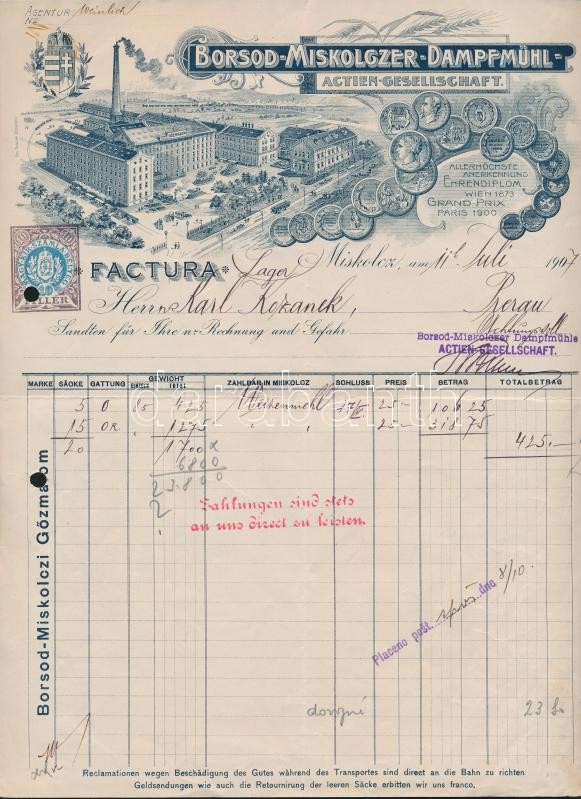 AGENTUR: Weinlich
No
BORSOD-MISKOLCZER-DAMPFMÜHL-
ACTIEN-GESELLSCHAFT.
ALLERHÖCHSTE
ANERKENNUNG
EHRENDIPLOM
WIEN 1873
GRAND-PRIX
PARIS 1900
FILLER
FACTURA Lager Miskolcz, am 11t Juli 1907
Herrn Karl Kozanek, Prerau
Sandten für Ihre w. Rechnung und Gefahr
Borsod-Miskolczer Dampfmühle
ACTIEN-GESELLSCHAFT.
MARKE SÄCKE GATTUNG GEWICHT EINZELN TOTAL ZAHLBAR IN MISKOLCZ SCHLUSS PREIS BETRAG TOTALBETRAG
5 0 85 425 25- 106 25
15 0R " 1275 " " 25- 318 75
20 1700 425.-
6800
23.800
Zahlungen sind stets
an uns direct zu leisten.
Borsod-Miskolczi Gőzmalom
Placeno pošt. dne 8/10.
23
Reclamationen wegen Beschädigung des Gutes während des Transportes sind direct an die Bahn zu richten.
Geldsendungen wie auch die Retournirung der leeren Säcke erbitten wir uns franco.
darabanth